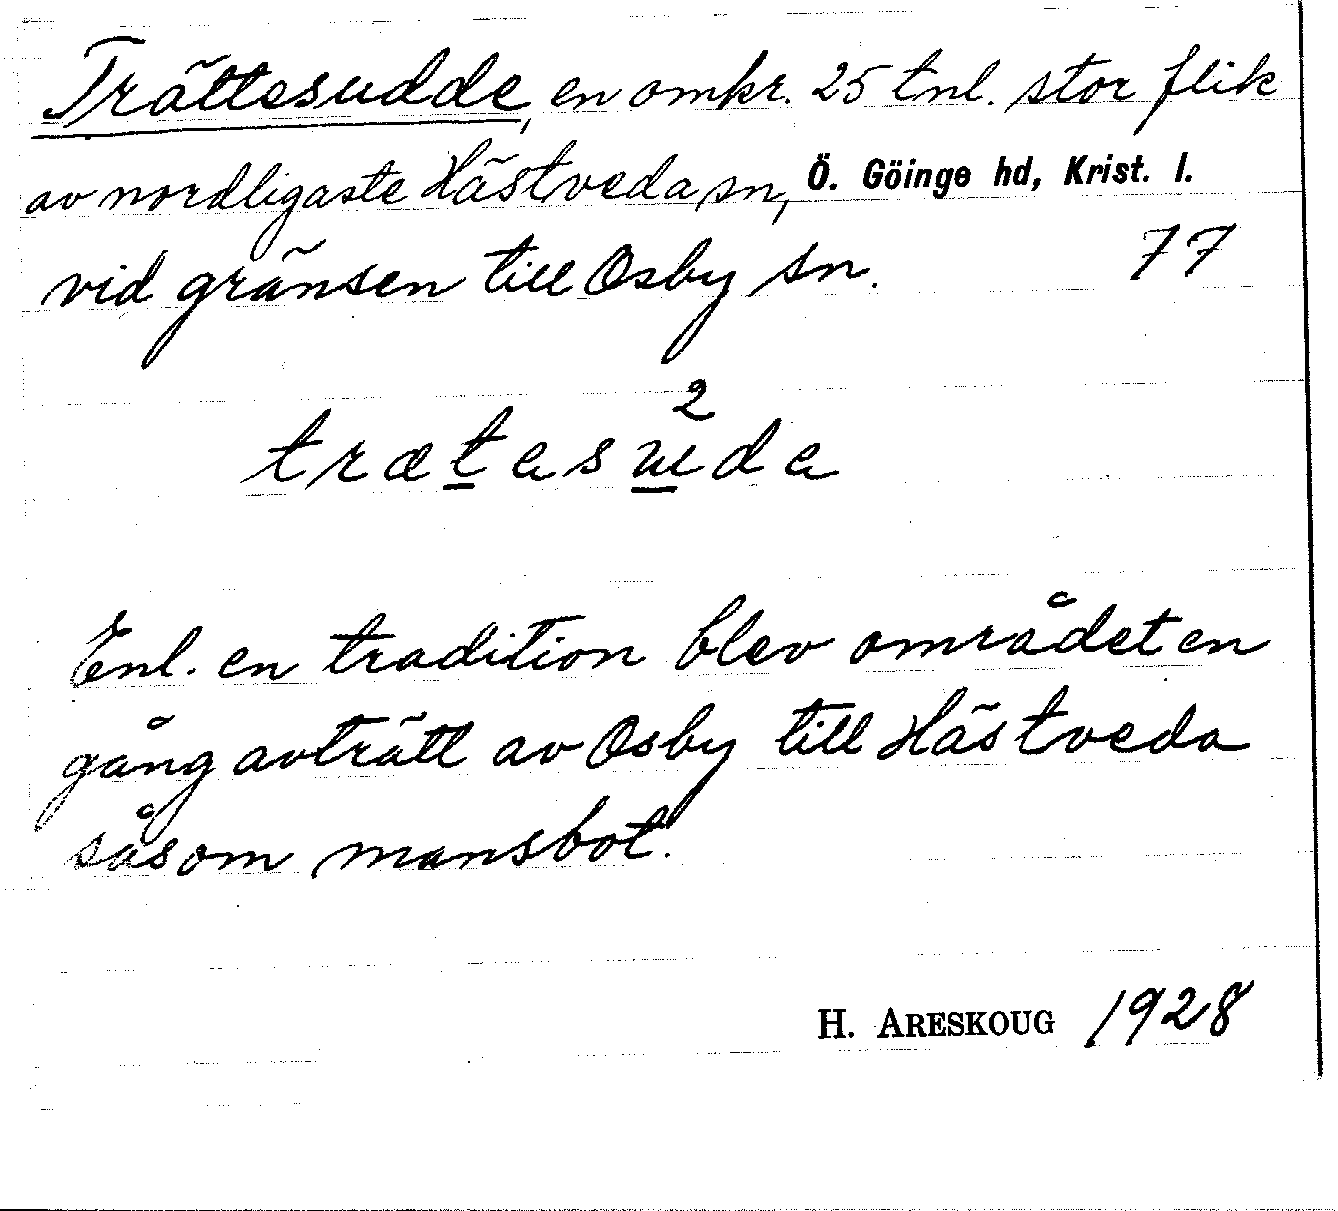 Trättesudde, en omkr. 25 tnl. stor flik
av nordligaste Hästveda sn, Ö. Göinge hd, Krist. l.
vid gränsen till Osby sn. 77
2
Enl. en tradition blev området en
gång avträtt av Osby till Hästveda
såsom mansbot.
H. ARESKOUG 1928